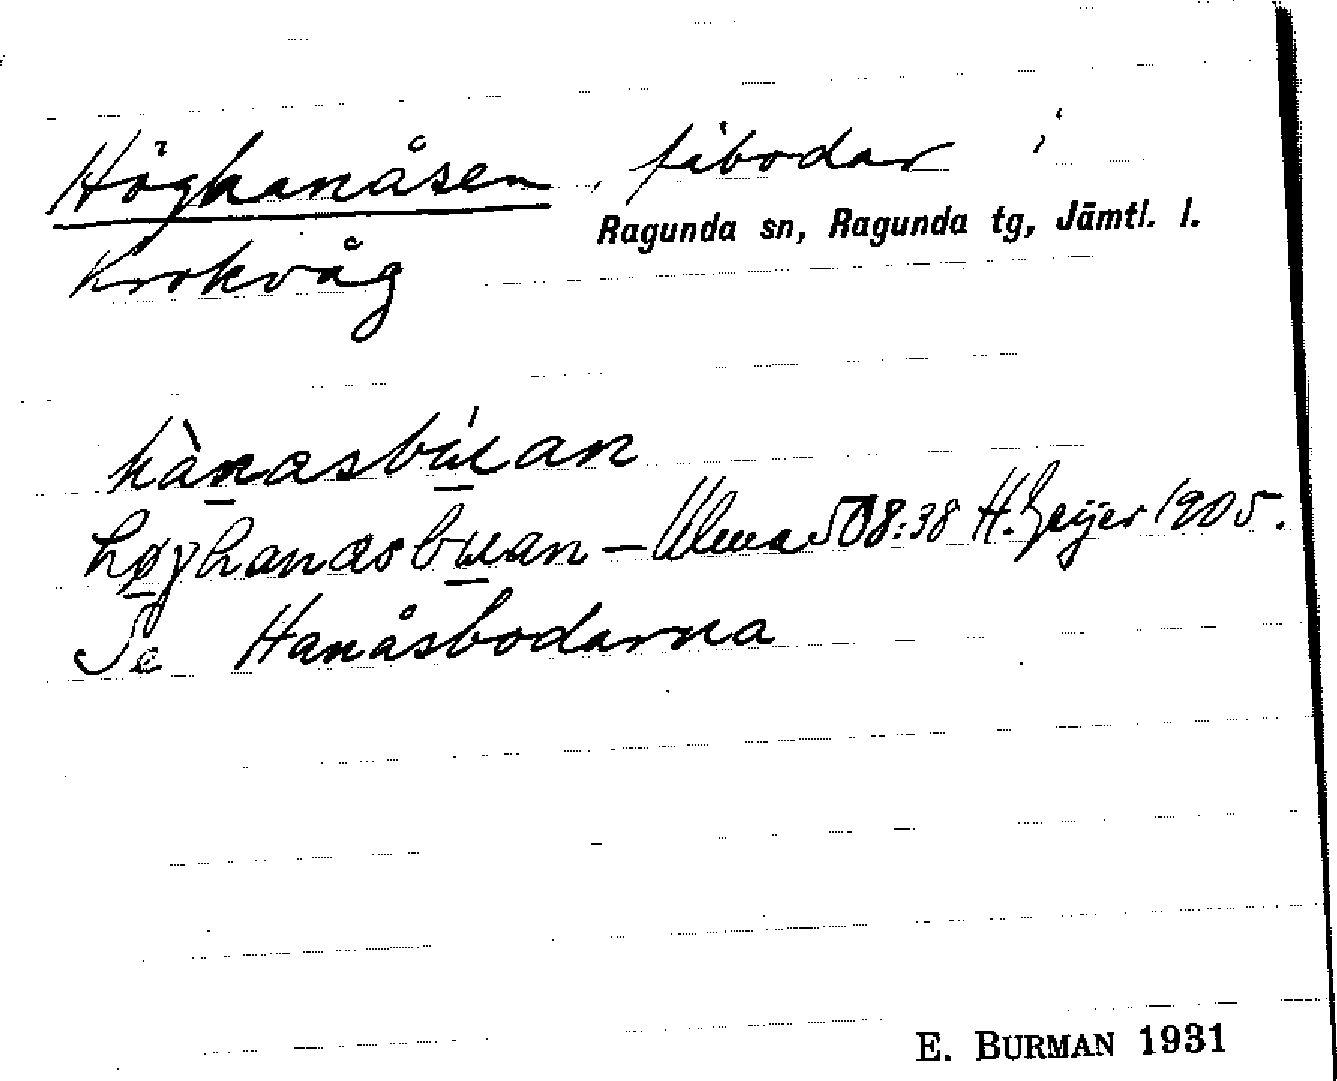 Höghanåsen, fäbodar i
Ragunda sn, Ragunda tg, Jämtl. l.
Krokvåg
hànasbúan
høghanasbuan – Ulma 508:38 H. Geijer 1905.
Se Hanåsbodarna
E. BURMAN 1931